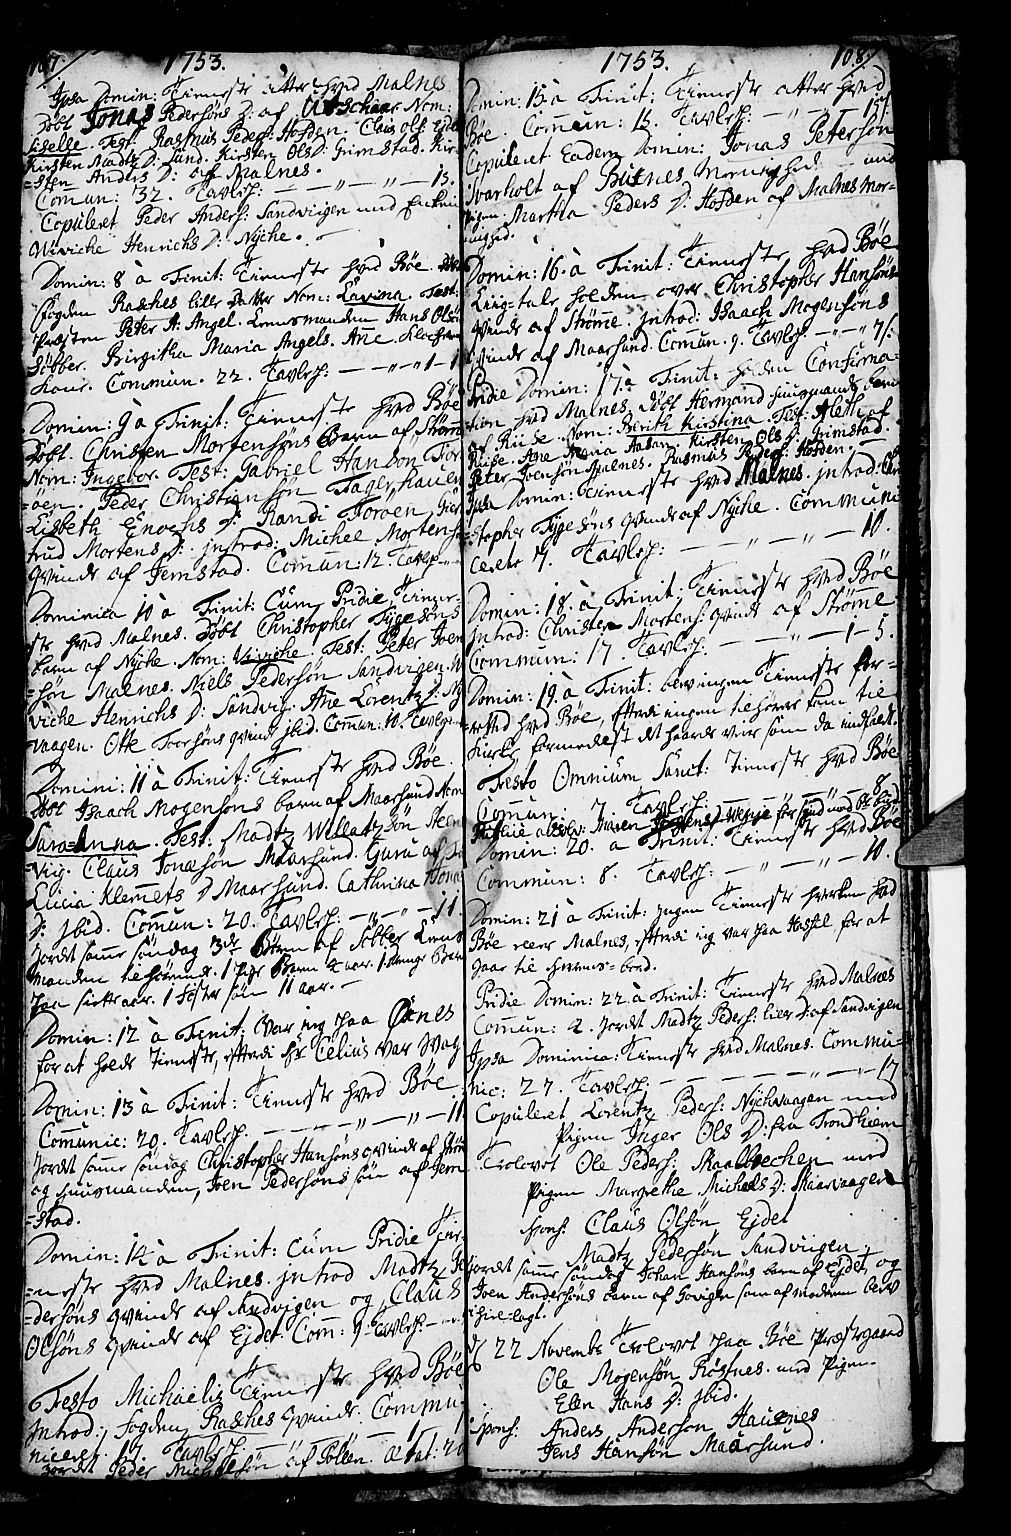 107.
1753.
Ipsa Domin: Tieneste atter hved Malnes
Döbt Jonas Pedersöns D: af Utschaar Nom:
Liselle. Test. Rasmus Peders: Hofden. Claus Ols: Ejdet
Kirsten Madtz D: Sund. Kirsten Ols D: Grimstad. Kir-
=sten Anders D: af Malnes.
Comun: 32. Tavlep: — — „ — „ — 15.
Copuleret Peder Anders: Sandvigen med Enken
Wiviche Henrichs D: Nyche.
Domin: 8 à Trinit: Tieneste hved Böe.
Fogden Rasches lille Datter Nom: Lavina. Test:
Præsten Peter A: Angel. Lensmanden Hans Ols
Söbber. Birgitha Maria Angels. Ane
Commun. 22. Tavlep: — — „ — „ 1-1
Domin: 9 à Trinit: Tieneste hved Böe
Döbt. Christen Mortensöns Barn af Strömme
Nom: Ingebor. Test: Gabriel Hanson For
=öen. Peder Christiansön
Lisbeth Enochs D: Randi Foröen. Gier
trud Mortens D: introd: Michel Mortens:
qvinde af Jemstad. Comun: 12. Tavlep
Dominica 10 à Trinit: Cum Pridie Tiene-
ste hved Malnes. Döbt Christopher Tygesöns
barn af Nyche. Nom: Viviche. Test: Peter Joen
=sön Malnes. Niels Pedersön Sandvigen. Wi
viche Henrichs D: Sandvig. Ane Lorentz D: Ny
vaagen. Otte Toersöns qvinde ibid. Comun: 10. Tavlep
Domin: 11 à Trinit: Tieneste hved Böe.
Döbt Isaach Mogensöns barn af Maarsund Nom
Sara-Anna. Test. Madtz Willatzsön Steen
=vig. Claus Jonæsön Maarsund. Guru
Elicia Klemmets D Maarsund. Cathrina Jonæ
D: ibid. Comun: 20. Tavlep: — „ — „ — 11
Jordet samme söndag 3de Börn af Söbber Lens
manden tilhörende. 1 Pige Barn 4 aar. 1 dænge Barn
paa siette aar. 1 Foster sön 11 aar. —
Domin: 12 à Trinit: Var ieg paa Öxnes
for at holde Tieneste, efterdi Hr. Celius var Svag
Domin: 13 à Trinit: Tieneste hved Böe
Comunic: 20. Tavlep. — — — „ — „ — 11
Jordet samme söndag Christopher Hansöns qvinde af Ström
og huusmanden, Joen Pedersöns sön af Jem
=stad.
Domin: 14 à Trinit: Cum Pridie Tie-
=neste hved Malnes. introd Madtz Pe
dersöns qvinde af Sandvigen og Claus
Olsöns qvinde af Ejdet. Com: 9. Tavlep: —
Festo Michaelis Tieneste hved Böe
Introd: Fogden Rasches qvinde. Commu
nicerit. 17. Tavlep. — — —
Jordet Peder Nichelsön af Föllen. Ætat: 20
1753.
108.
Domin: 15 à Trinit: Tieneste atter hved
Böe. Comun: 15. Tavlep: — „ — „ — 15/.
Copuleret Eadem Domin: Jonas Petersön
Svarholt af Butnes Menighed — med
Pigen Martha Peders D: Hofden af Malnes Me-
nighed.
Domin: 16. à Trinit: Tieneste hved Böe
Liig-tale holden over Christopher Hansöns
Qvinde af Strömme. introd: Isaach Mogensöns
Qvinde af Maarsund. Comun. 9. Tavlep: — „ — „ 7/.
Pridie Domin: 17 à Trinit: holden Confirma-
tion hved Malnes, Döbt Hermand huusmands barn
af Riise. Nom: Berith Kirstina. Test: Aleth af
Riise. Ane Maria Aasan. Kirsten Ols D: Grimstad.
Peter Joensön Malnes. Rasmus Peders: Hofden.
Ipsa Domin: Tieneste hved Malnes. introd: Chri
=stopher Tygesöns qvinde af Nyche. Communi
cerete 7. Tavlep: — — „ — „ — 10.
Domin: 18. à Trinit: Tieneste hved Böe
introd: Christen Mortens: qvinde af Strömme.
Commun: 17. Tavlep: — — „ — 1-5.
Domin: 19. à Trinit: blev ingen Tieneste for-
=rettet hved Böe, efterdi ingen tilhörer kom til
Kirke formedelst det haarde veir som da indfaldt.
Festo Omnium Sanct: Tieneste hved Böe
Commun: 7. Tavlep: — — „ — „ — 8.
Domin: 20. a Trinit: Tieneste hved Böe
Commun: 8. Tavlep: — „ — „ — 10.
Domin: 21 à Trinit: Ingen Tieneste hverken hved
Böe eller Malnes, efterdi ieg var paa Hassel for at
gaae til Herrens-bord.
Pridie Domin: 22 à Trinit: Tieneste hved Malnes
Comun: 2. Jordet Madtz Peders: liden D: af Sandvigen
Ipsa Dominica: Tieneste hved Malnes. Commu-
nic: 27. Tavlep: — — — — „ — „ — 17
Copuleret Lorentz Peders: Nychvaagen med
Pigen Inger Ols D: fra Trondhiem
Trolovet Ole Peders: Skaalbrechen med
Pigen Margrethe Michels D: Skaarvaagen
Spons: Claus Olsön Ejdet
Madtz Pedersön Sandvigen
Jordet samme söndag Johan Hansöns barn af Ejdet og
Joen Andersöns barn af Govigen som af moderen blev
ihiel-lagt.
d 22 Novemb: Trolovet paa Böe Præstegaard
Ole Mogensön Röstnes. med Pigen
Elen Hans D: ibid.
Spons: Anders Anderson Hausnes
Jens Hansön Maarsund.